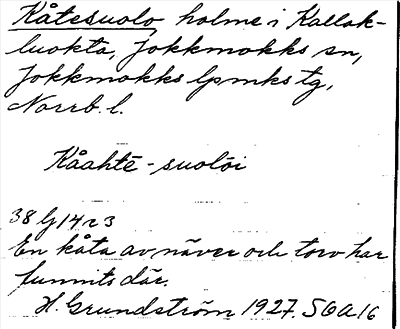 Kåtesuolo, holme i Kallak-
luokta, Jokkmokks sn,
Jokkmokks lpmks tg,
Norrb. l.
Kåahtē-suolōi
38 G 14 r 3
En kåta av näver och torv har
funnits där.
H. Grundström 1927. S6A16